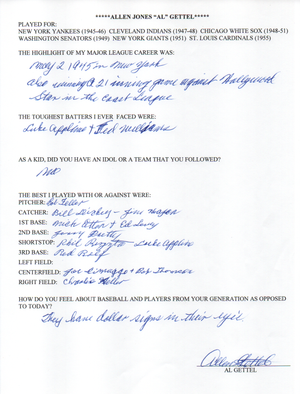 *****ALLEN JONES "AL" GETTEL*****
PLAYED FOR:
NEW YORK YANKEES (1945-46) CLEVELAND INDIANS (1947-48) CHICAGO WHITE SOX (1948-51)
WASHINGTON SENATORS (1949) NEW YORK GIANTS (1951) ST. LOUIS CARDINALS (1955)
THE HIGHLIGHT OF MY MAJOR LEAGUE CAREER WAS:
May 2 1945 in New York
also winning a 21 inning game against Hollywood
Stars in the Coast League
THE TOUGHEST BATTERS I EVER FACED WERE:
Luke Appling & Ted Williams
AS A KID, DID YOU HAVE AN IDOL OR A TEAM THAT YOU FOLLOWED?
No
THE BEST I PLAYED WITH OR AGAINST WERE:
PITCHER: Bob Feller
CATCHER: Bill Dickey - Jim Hegan
1ST BASE: &
2ND BASE:
SHORTSTOP: Phil Rizzuto Luke Appling
3RD BASE: Red Rolfe
LEFT FIELD:
CENTERFIELD: Joe Dimaggio & Bob Thomson
RIGHT FIELD: Charlie Keller
HOW DO YOU FEEL ABOUT BASEBALL AND PLAYERS FROM YOUR GENERATION AS OPPOSED
TO TODAY?
They have dollar signs in their eyes
Allen Gettel
AL GETTEL